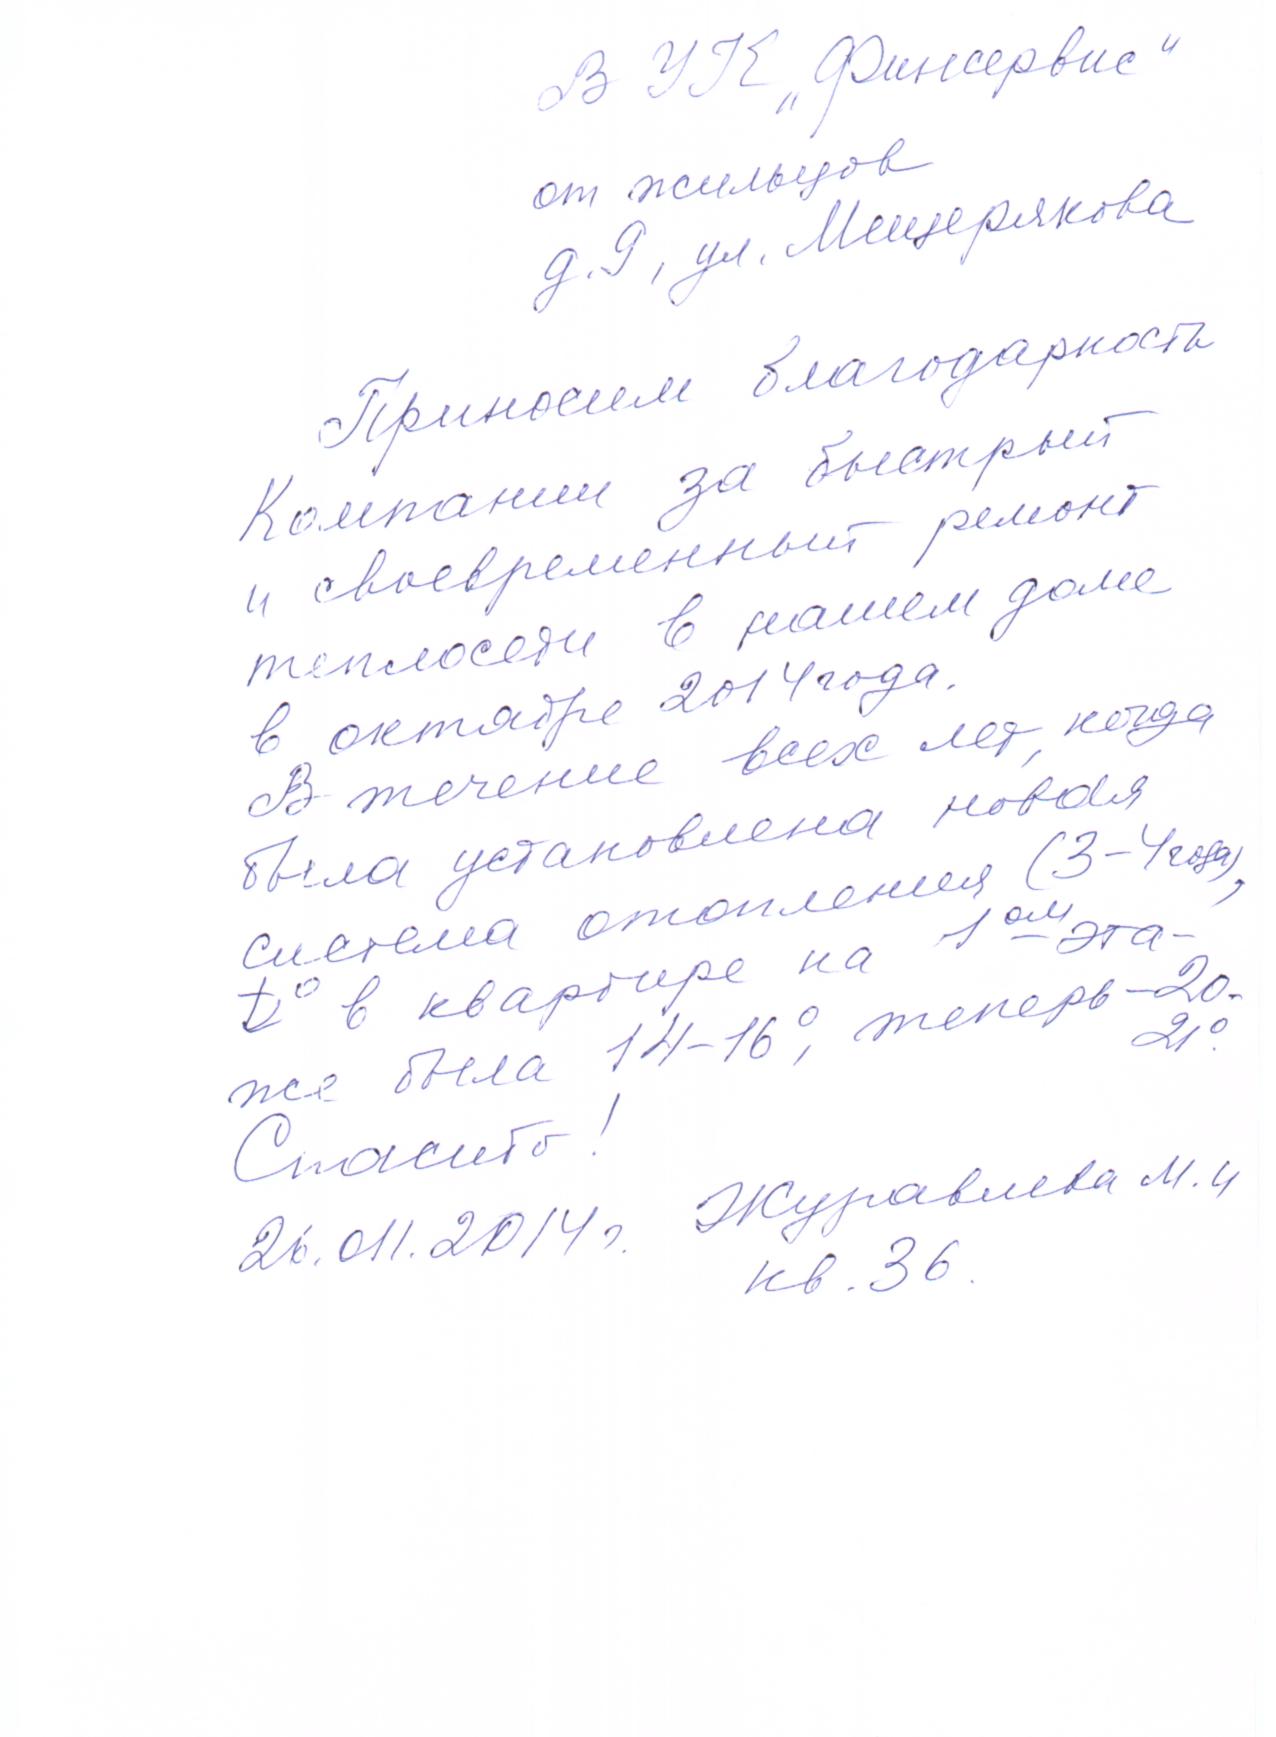 В УК „Финсервис"
от жильцов
д.9, ул. Мещерякова
Приносим благодарность
Компании за быстрый
и своевременный ремонт
теплосети в нашем доме
в октябре 2014 года.
В течение всех лет, когда
была установлена новая
система отопления (3-4 года),
t° в квартире на 1ом эта-
же была 14-16°, теперь – 20-
21°.
Спасибо!
26.011.2014 г. Журавлева М.И
кв. 36.